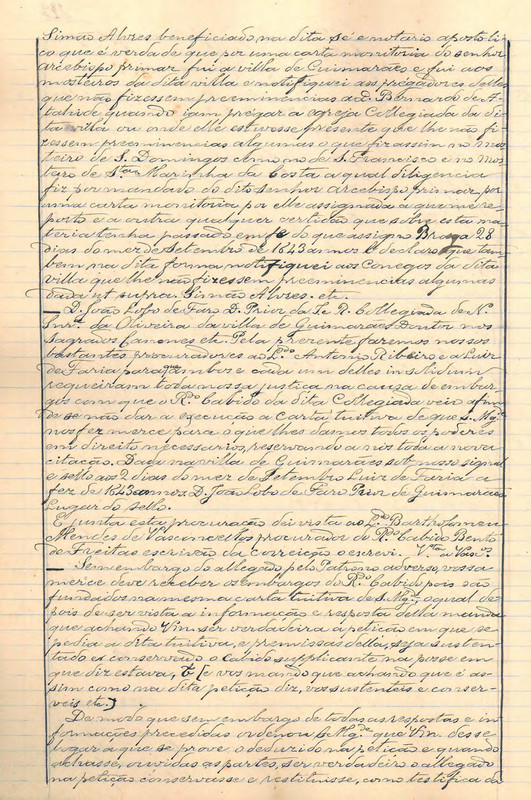 Simão Alvres beneficiado na dita Sé e notario aposto li
co que é verdade que por uma carta monitoria do senhor
arcebispo primaz fui á villa de Guimarães e fui aos
mosteiros da dita villa e notifiquei aos prégadores delles
que não fizessem preeminencias a C. Bernardo de A-
tahide quando iam prégar a egreja Collegiada da di-
ta villa ou onde elle estivesse presente que lhe não fi-
zessem preeminencias algumas o que fiz assim no mos-
teiro de S. Domingos como no de S. Francisco e no Mos-
teiro de Sta Marinha da Costa a qual diligencia
fiz por mandado do dito senhor arcebispo primaz por
uma carta monitoria por elle assignada a que me re-
porto e a outra qualquer certidão que sobre esta ma-
teria tenha passado em fé do que assigno Braga 28
dias do mez de Setembro de 1643 annos e declaro que tam-
bem na dita forma notifiquei aos Conegos da dita
villa que lhe não fizessem preeminencias algumas
dada ut supra. Simão Alvres. etc
— D. João Lobo de Faro D. Prior da I. e R. Collegiada de N.
Snrª. da Oliveira da villa de Guimarães Doutor nos
Sagrados Canones etc. Pela presente fazemos nossos
bastantes procuradores ao Ldo Antonio Ribeiro e a Luiz
de Faria para que ambos e cada um delles in solidum
requeiram toda nossa justiça na causa de embar-
gos com que o Rdo. Cabido da dita Collegiada veio afim
de se não dar a execução a carta tuitiva de que S. Mgde
nos fez merce para o que lhes damos todos os poderes
em direito necessarios, reservando a nós toda a nova
citação. Dada na villa de Guimarães sob nosso signal
e sello aos 2 dias do mez de Setembro Luiz de Faria a
fez de 1643 annos D. João Lobo de Faro Prior de Guimarães
Lugar do sello.
E junta esta procuração dei vista ao Ldo Bartholomeu
Mendes de Vasconcellos procurador do Rdo. Cabido Bento
de Freitas escrivão da correição o escrevi. Vta a Vascos.
— Sem embargo do allegado pelo Patrono adverso, vossa
merce deve receber os embargos do Rdo Cabido pois são
fundados na mesma carta tuitiva de S. Mgde, o qual de-
pois de ser vista a informação e resposta della manda
que achando Vm. ser verdadeira a petição em que se
pedia a dita tuitiva, e premissas della, seja susten-
tado e conservado o Cabido supplicante na posse em
que diz estava, [e vos mando que achando que é as-
sim como na dita petição diz, vos sustenteis e conser-
veis etc.]
De modo que sem embargo de todas as respostas e in-
formações precedidas ordenou S. Mgde que Vm. désse
logar a que se prove o deduzido na petição e quando
achasse, ouvidas as partes, ser verdadeiro o allegado
na petição conservasse e restituisse, como testifica da